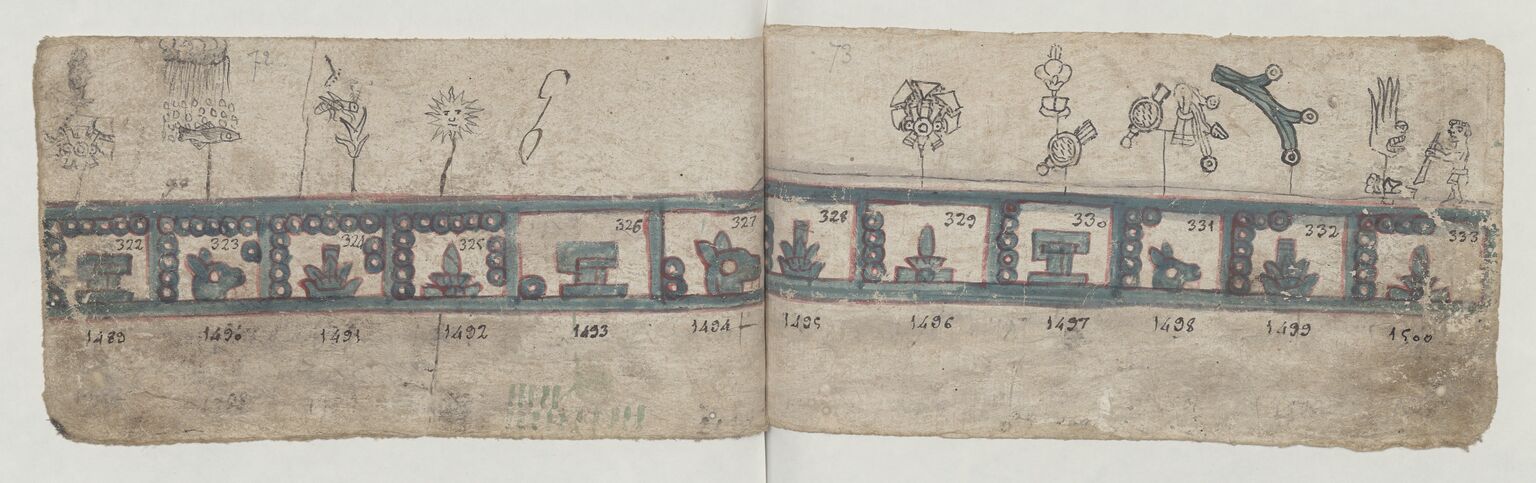 72
73
322 323 324 325 326 327 328 329 330 331 332 333
1489 1490 1491 1492 1493 1494 1495 1496 1497 1498 1499 1500